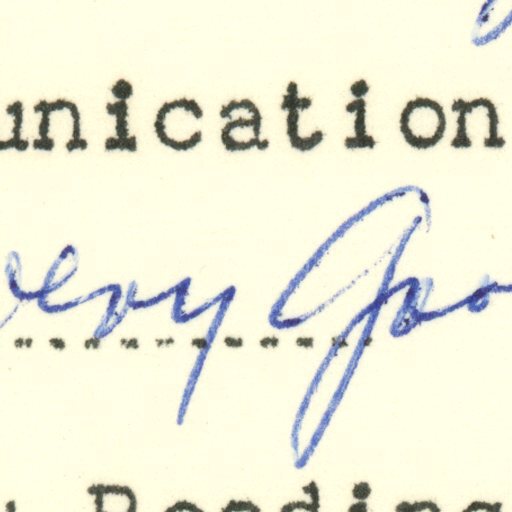 unication
very Goo
Reading